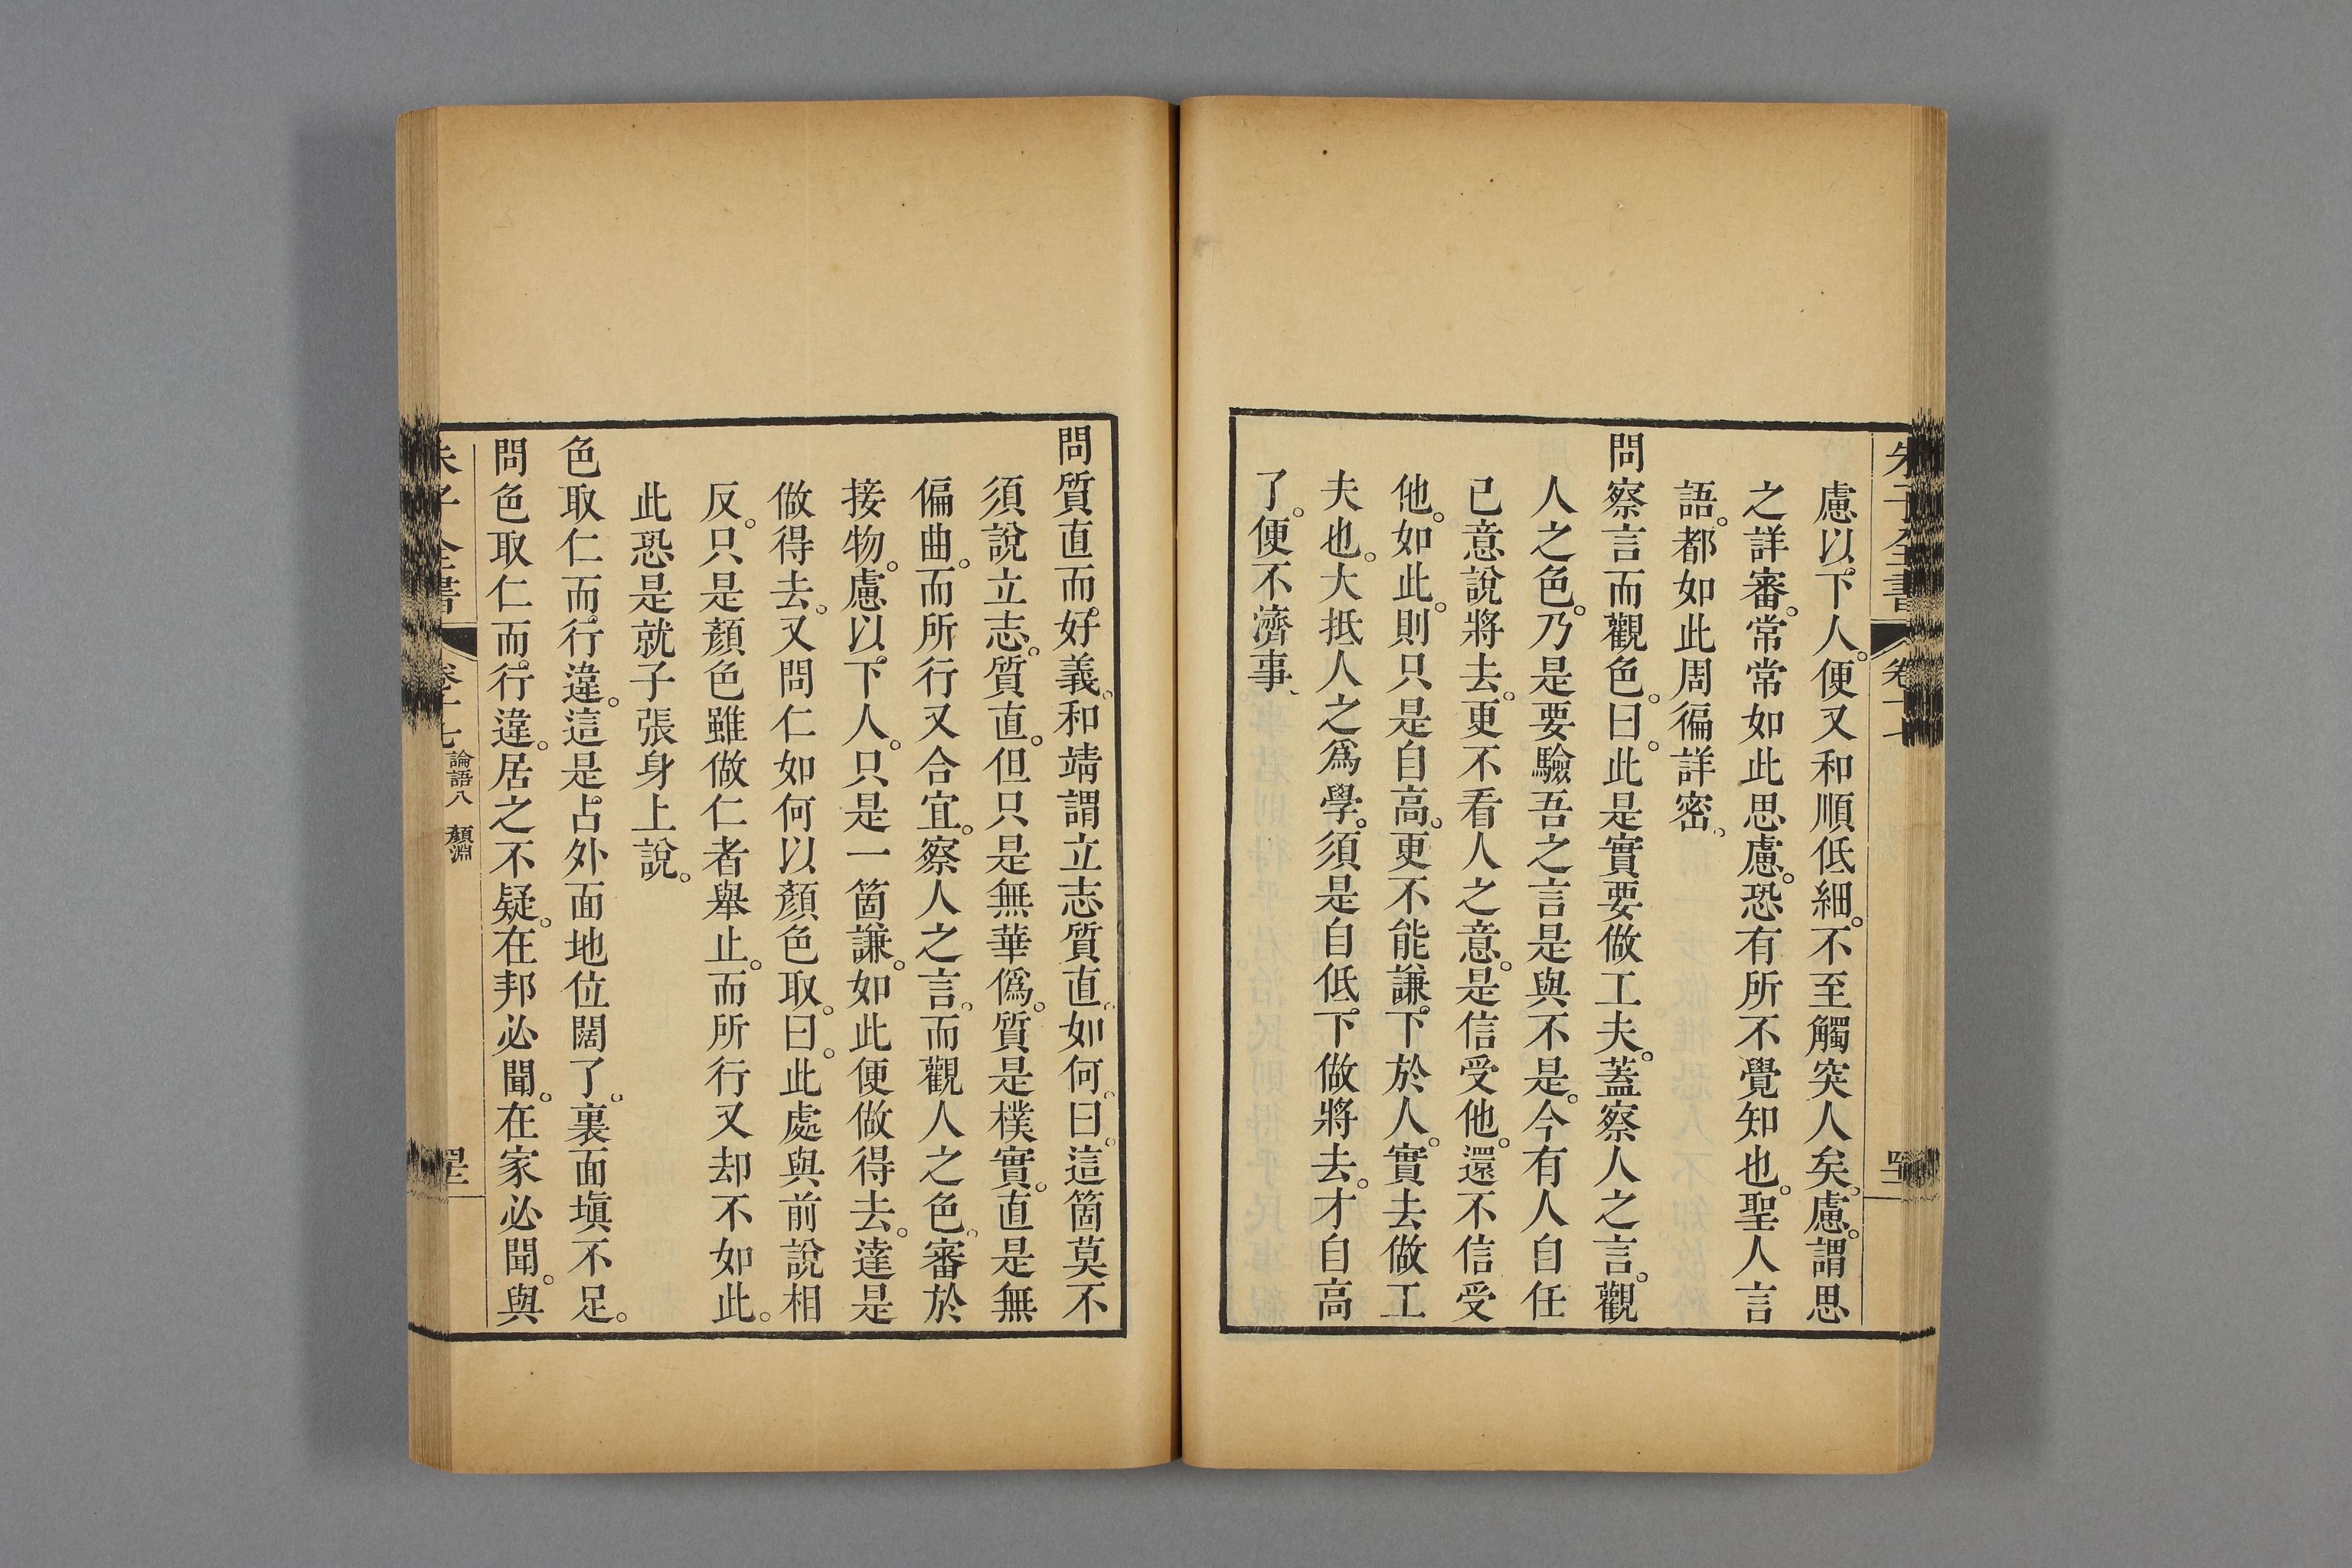 慮以下人。便又和順低細。不至觸突人矣。慮。謂思
之詳審。常常如此思慮。恐有所不覺知也。聖人言
語。都如此周徧詳密。
問察言而觀色。曰。此是實要做工夫。蓋察人之言。觀
人之色。乃是要驗吾之言是與不是。今有人自任
已意說將去。更不看人之意。是信受他。還不信受
他。如此。則只是自高。更不能謙下於人。實去做工
夫也。大抵人之爲學。須是自低下做將去。才自高
了。便不濟事。
問質直而好義。和靖謂立志質直。如何。曰。這箇莫不
須說立志。質直。但只是無華僞。質是樸實。直是無
偏曲。而所行又合宜。察人之言。而觀人之色。審於
接物。慮以下人。只是一箇謙。如此便做得去。達是
做得去。又問仁如何以顏色取。曰。此處與前說相
反。只是顏色雖做仁者舉止。而所行又却不如此。
此恐是就子張身上說。
色取仁而行違。這是占外面地位闊了。裏面塡不足。
問色取仁而行違。居之不疑。在邦必聞。在家必聞。與
論語八 顏淵